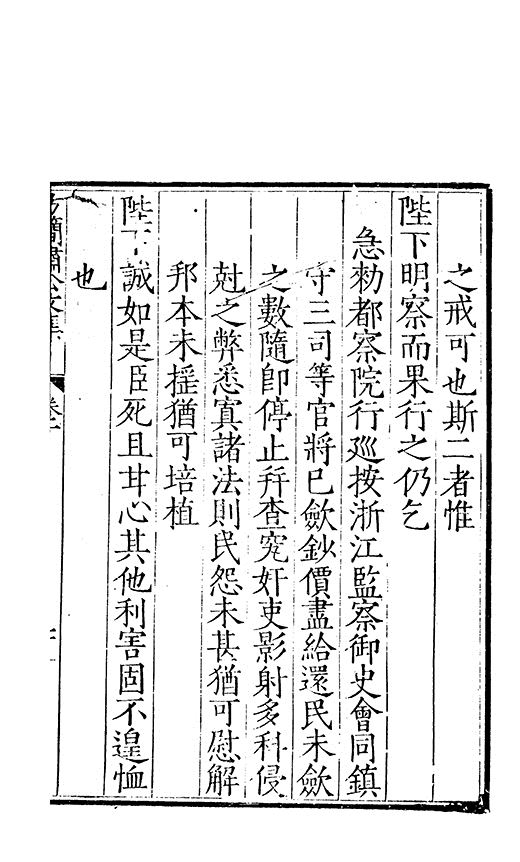 之戒可也斯二者惟
陛下明察而果行之仍乞
急勑都察院行廵按浙江監察御史會同鎮
守三司等官將已歛鈔價盡給還民未歛
之數隨卽停止并查究奸吏影射多科侵
尅之弊悉寘諸法則民怨未甚猶可慰解
邦本未揺猶可培植
陛下誠如是臣死且甘心其他利害固不遑恤
也
簡肅公文集
卷